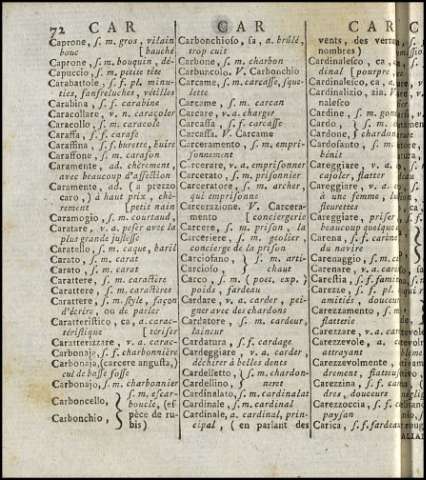 72 CAR CAR CAR
Caprone, s. m. gros, vilain
bouc [bauché
Caprone, s. m. bouquin, dé-
Capuccio, s. m. petite tête
Carabattole, s. f. pl. minu-
ties, fanfreluches, vétilles
Carabina, s. f. carabine
Caracollare, v. n. caracoler
Caracollo, s. m. caracole
Caraffa, s. f. carafe
Caraffina, s. f. burette, huire
Caraffone, s. m. carafon
Caramente, ad. chérement,
avec beaucoup d'affection
Caramente, ad. (a prezzo
caro,) à haut prix, ché-
rement [petit nain
Caramogio, s. m. courtaud,
Caratare, v. a. peser avec la
plus grande justesse
Caratello, s. m. caque, baril
Carato, s. m. carat
Carato, s. m. carat
Carattere, s. m. caractère
Carattere, s. m. caractères
Carattere, s. m. style, façon
d'écrire, ou de parler
Caratteristico, ca, a. carac-
téristique [tériser
Caratterizzare, v. a. carac-
Carbonaja, s. f. charbonnière
Carbonaja, (carcere angusta,)
cul de basse fosse
Carbonajo, s. m. charbonnier
Carboncello, } s. m. escar-
boucle, (es-
Carbonchio, pèce de ru-
bis)
Carbonchioso, sa, a. brûlé,
trop cuit
Carbone, s. m. charbon
Carbuncolo. V. Carbonchio
Carcame, s. m. carcasse, sque-
lette
Carcame, s. m. carcan
Carcare, v. a. charger
Carcassa, s. f. carcasse
Carcassa. V. Carcame
Carceramento, s. m. empri-
sonnement
Carcerare, v. a. emprisonner
Carcerato, s. m. prisonnier
Carceratore, s. m. archer,
qui emprisonne
Carcerazione. V. Carcera-
mento [conciergerie
Carcere, s. m. prison, la
Carceriere, s. m. geolier,
concierge de la prison
Carciofano, } s. m. arti-
Carciofo, chaut
Carco, s. m. (poet. exp.)
poids, fardeau
Cardare, v. a. carder, pei-
gner avec des chardons
Cardatore, s. m. cardeur,
laineur
Cardatura, s. f. cardage
Cardeggiare, v. a. carder,
déchirer à belles dents
Cardelletto, } s. m. chardon-
Cardellino, neret
Cardinalato, s. m. cardinalat
Cardinale, s. m. cardinal
Cardinale, a. cardinal, prin-
cipal, (en parlant des
vents, des vertus,
nombres)
Cardinalesco, ca, a. car-
dinal [pourpre,
Cardinalizio, zia,
nalesco
Cardine, s. m. gond,
Cardo, s. m.
Cardone, s. chardon
Cardosanto, s. m.
bénit
Careggiare, v. a.
cajoler, flatter
Careggiare, v. a.
à une femme, lui
fleurettes
Careggiare, priser
beaucoup quelque
Carena, s. f. carène
du navire
Carenaggio, s. m.
Carenare, v. a.
Carestia, s. f. famine
Carezze, s. f. pl.
amitiés, douceurs
Carezzamento, s. m.
flatterie
Carezzare, v. a.
Carezzevole, a.
attrayant
Carezzevolmente,
drement,
Carezzina, s. f.
dres, douceurs
Carezzoccia, s. f.
paysan
Carica, s. f. fardeau